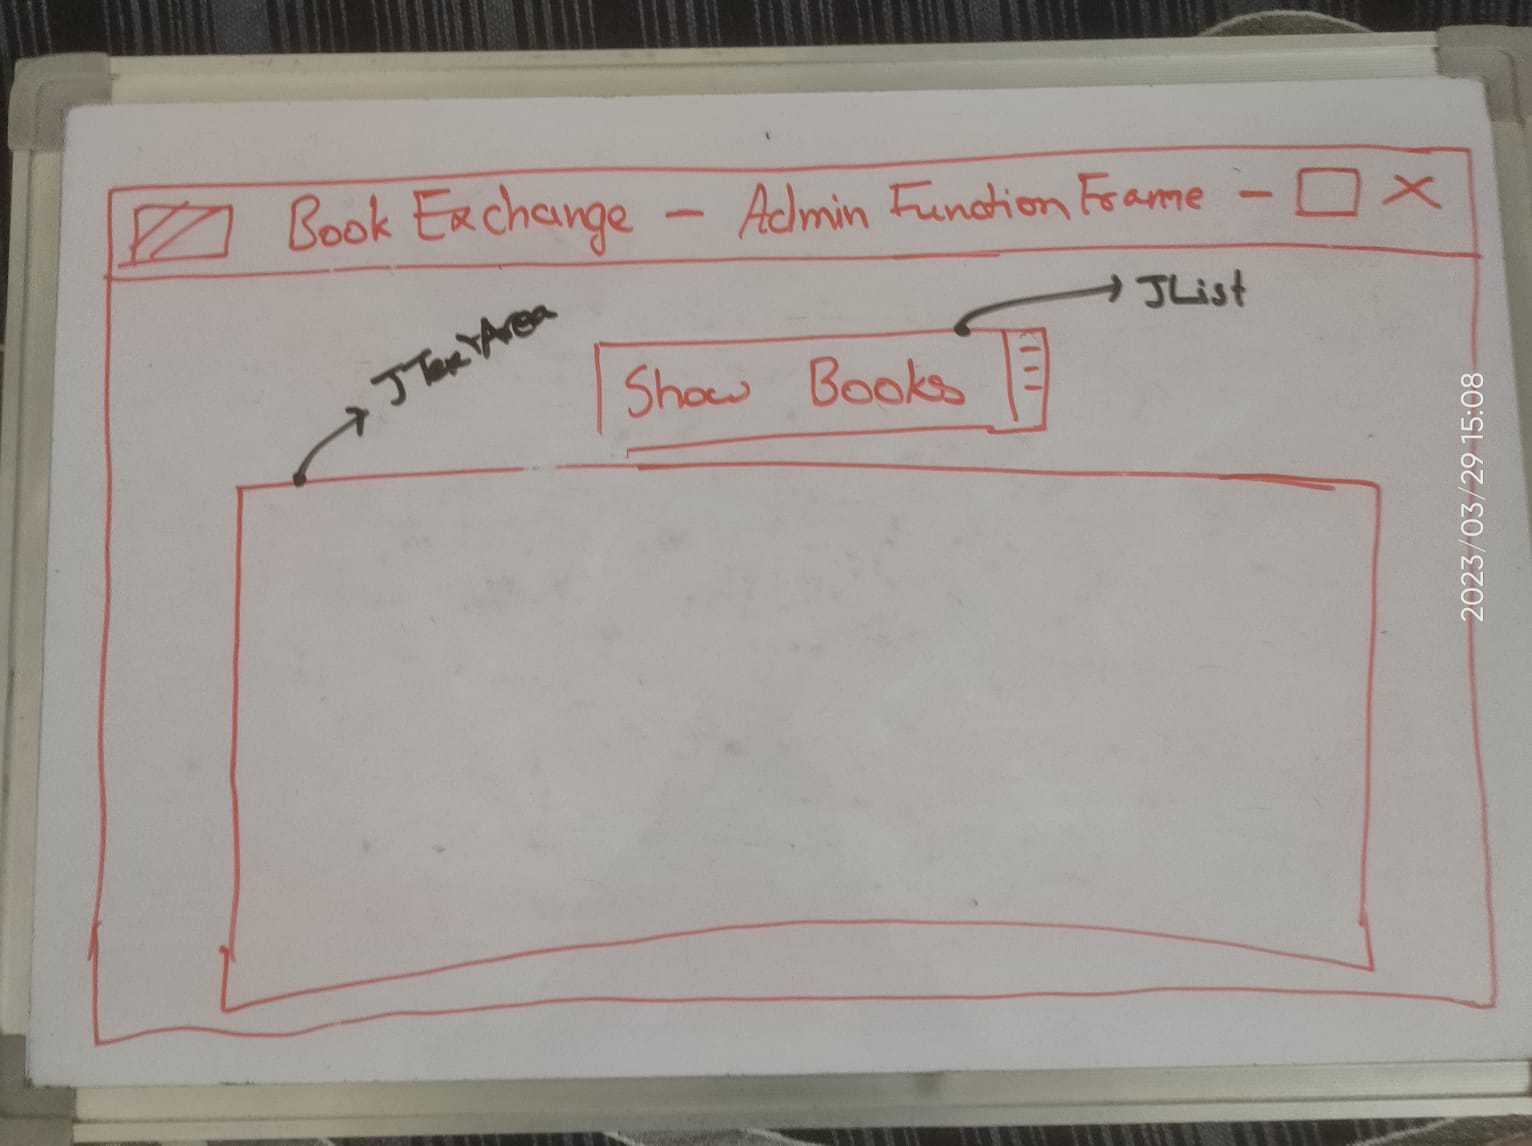 Book Exchange - Admin Function Frame - X
JList
JTextArea
Show Books
2023/03/29 15:08